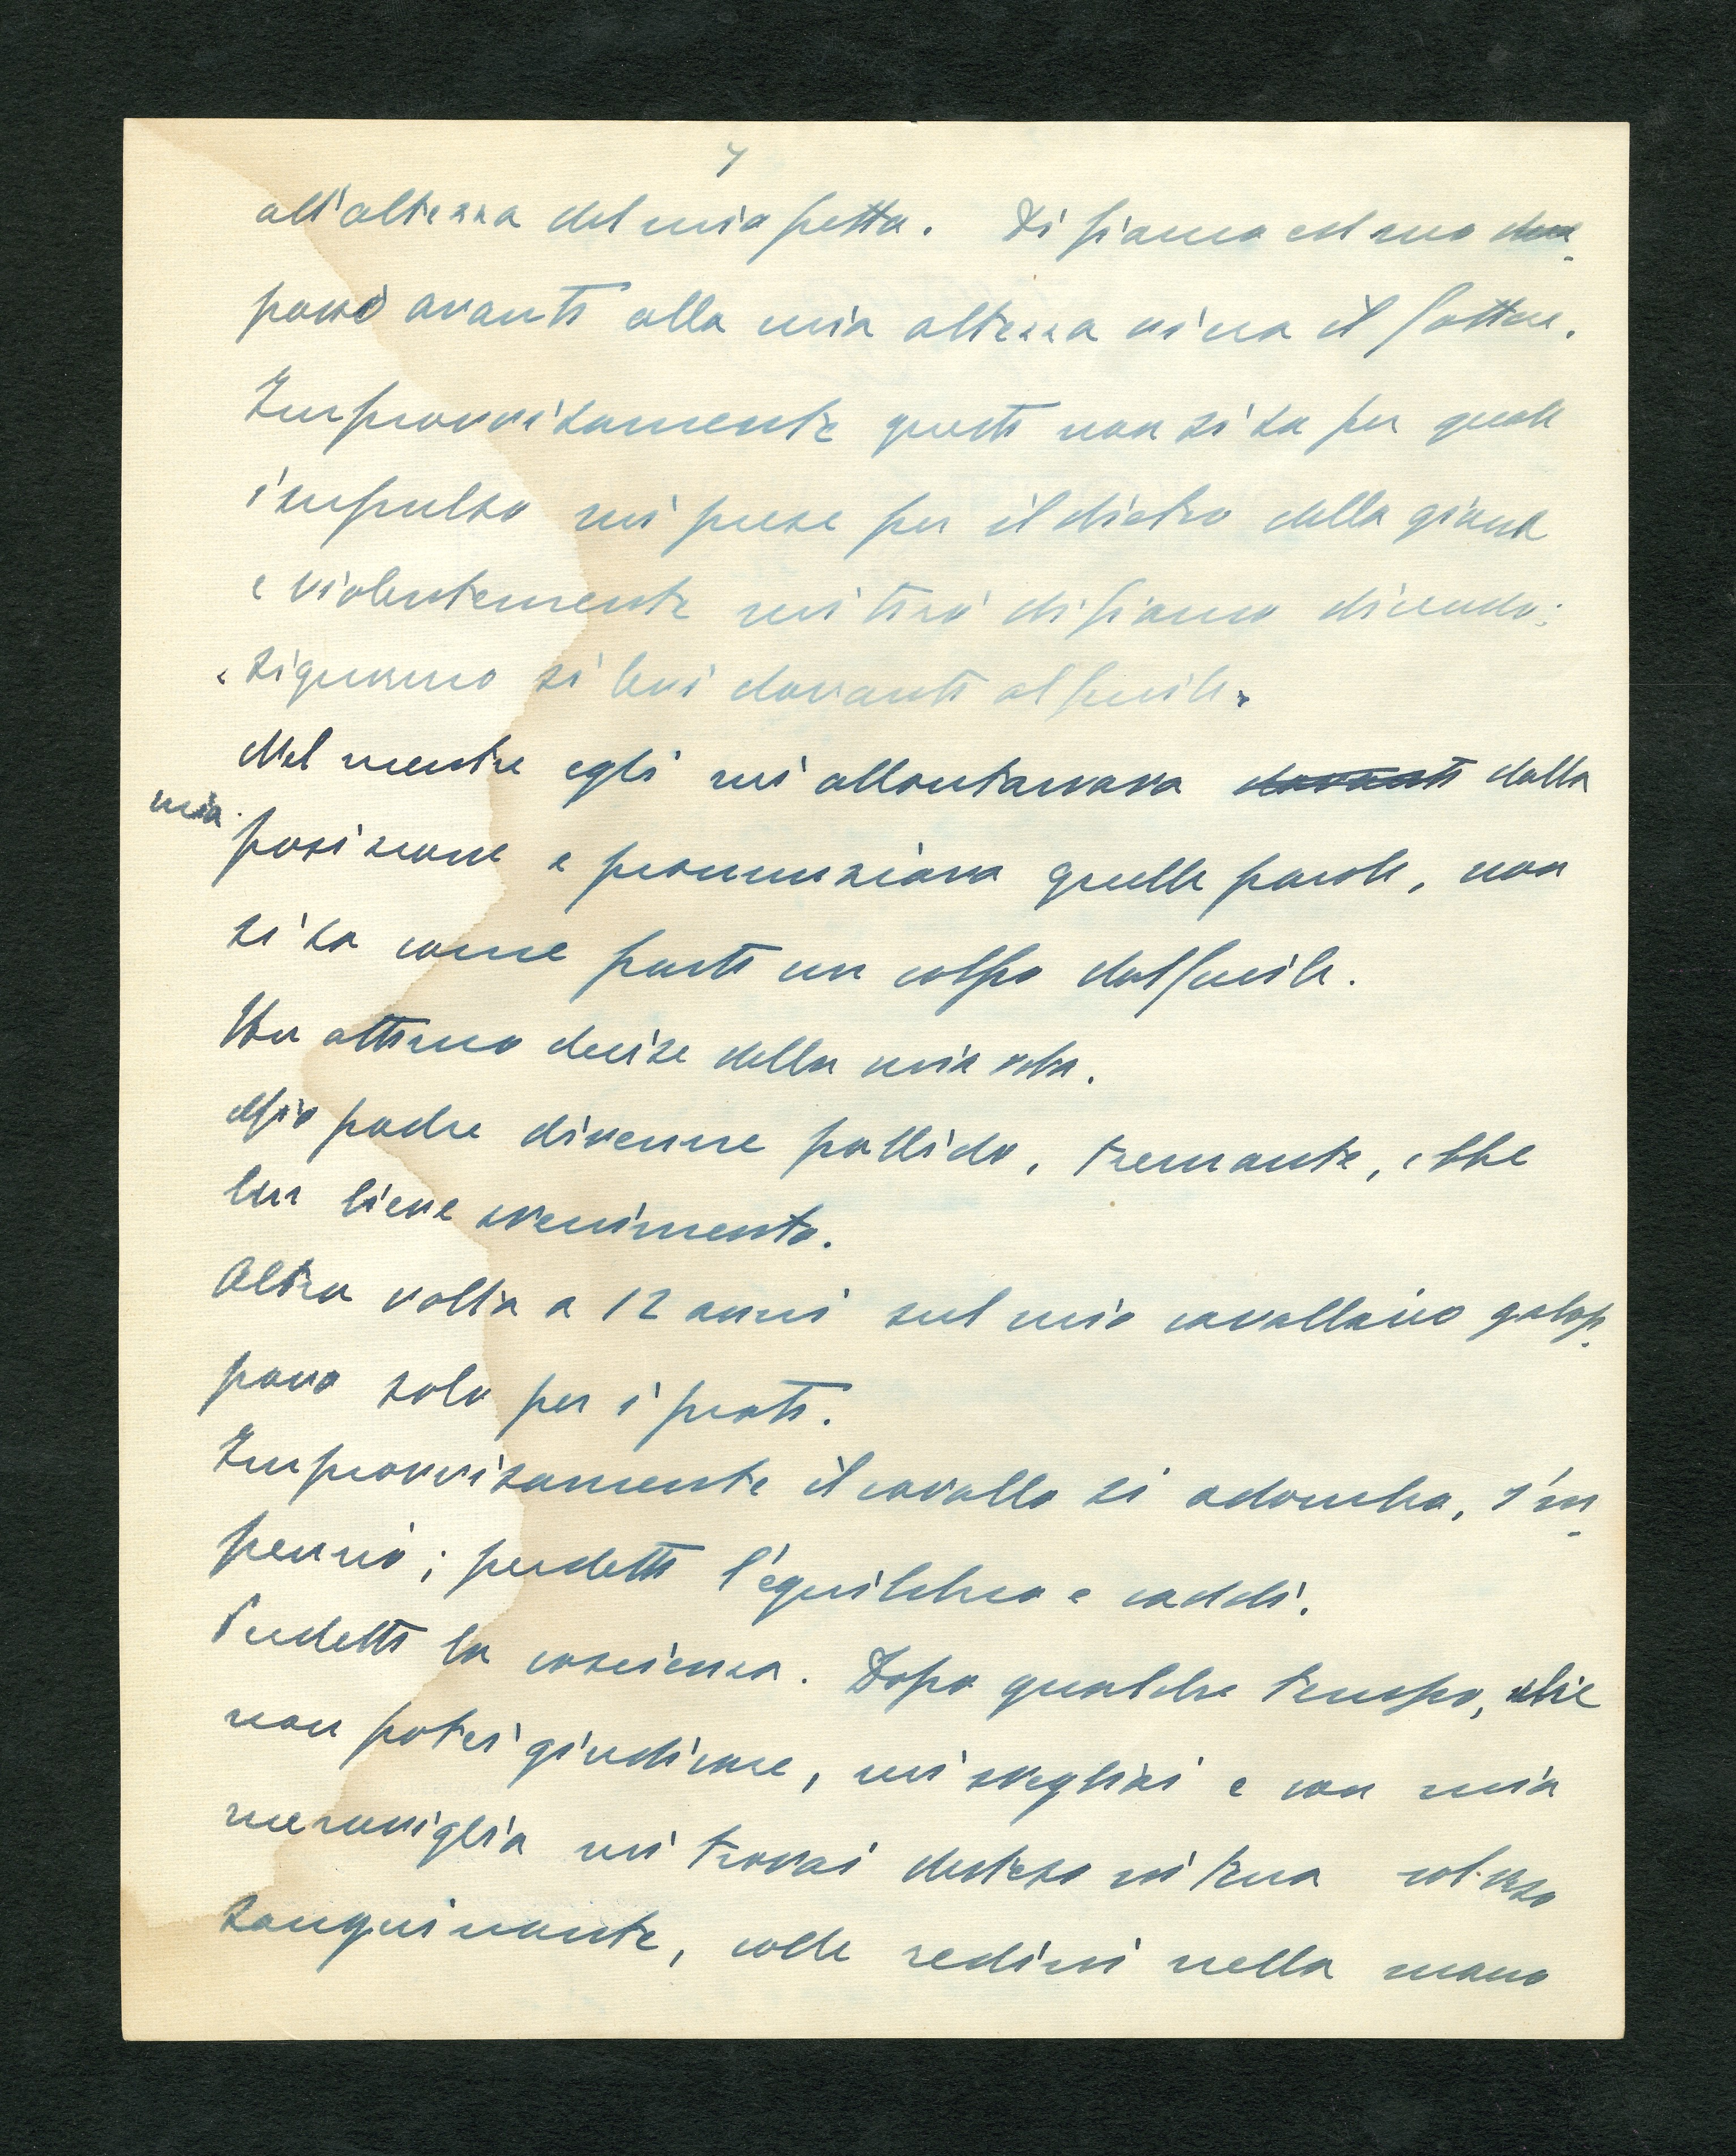 7
all'altezza del mio petto. Di fianco ed uno due
passi avanti alla mia altezza vi era il fattore.
Improvvisamente questi non si sa per quale
impulso mi prese per il dietro della giacca
e violentemente mi tirò di fianco dicendo:
"Signorino si levi davanti al fucile"
Nel mentre egli mi allontanava davanti dalla
mia
posizione e pronunziava quelle parole, non
si sa come partì un colpo dal fucile.
Un attimo decise della mia vita.
Mio padre divenne pallido, tremante, ebbe
un lieve svenimento.
Altra volta a 12 anni sul mio cavallaio galop-
pavo solo per i prati.
Improvvisamente il cavallo si adombra, s'im-
pennò; perdetti l'equilibrio e caddi.
Perdetti la coscienza. Dopo qualche tempo, che
non potei giudicare, mi svegliai e con mia
meraviglia mi trovai disteso in terra col viso
sanguinante, colle redini nella mano